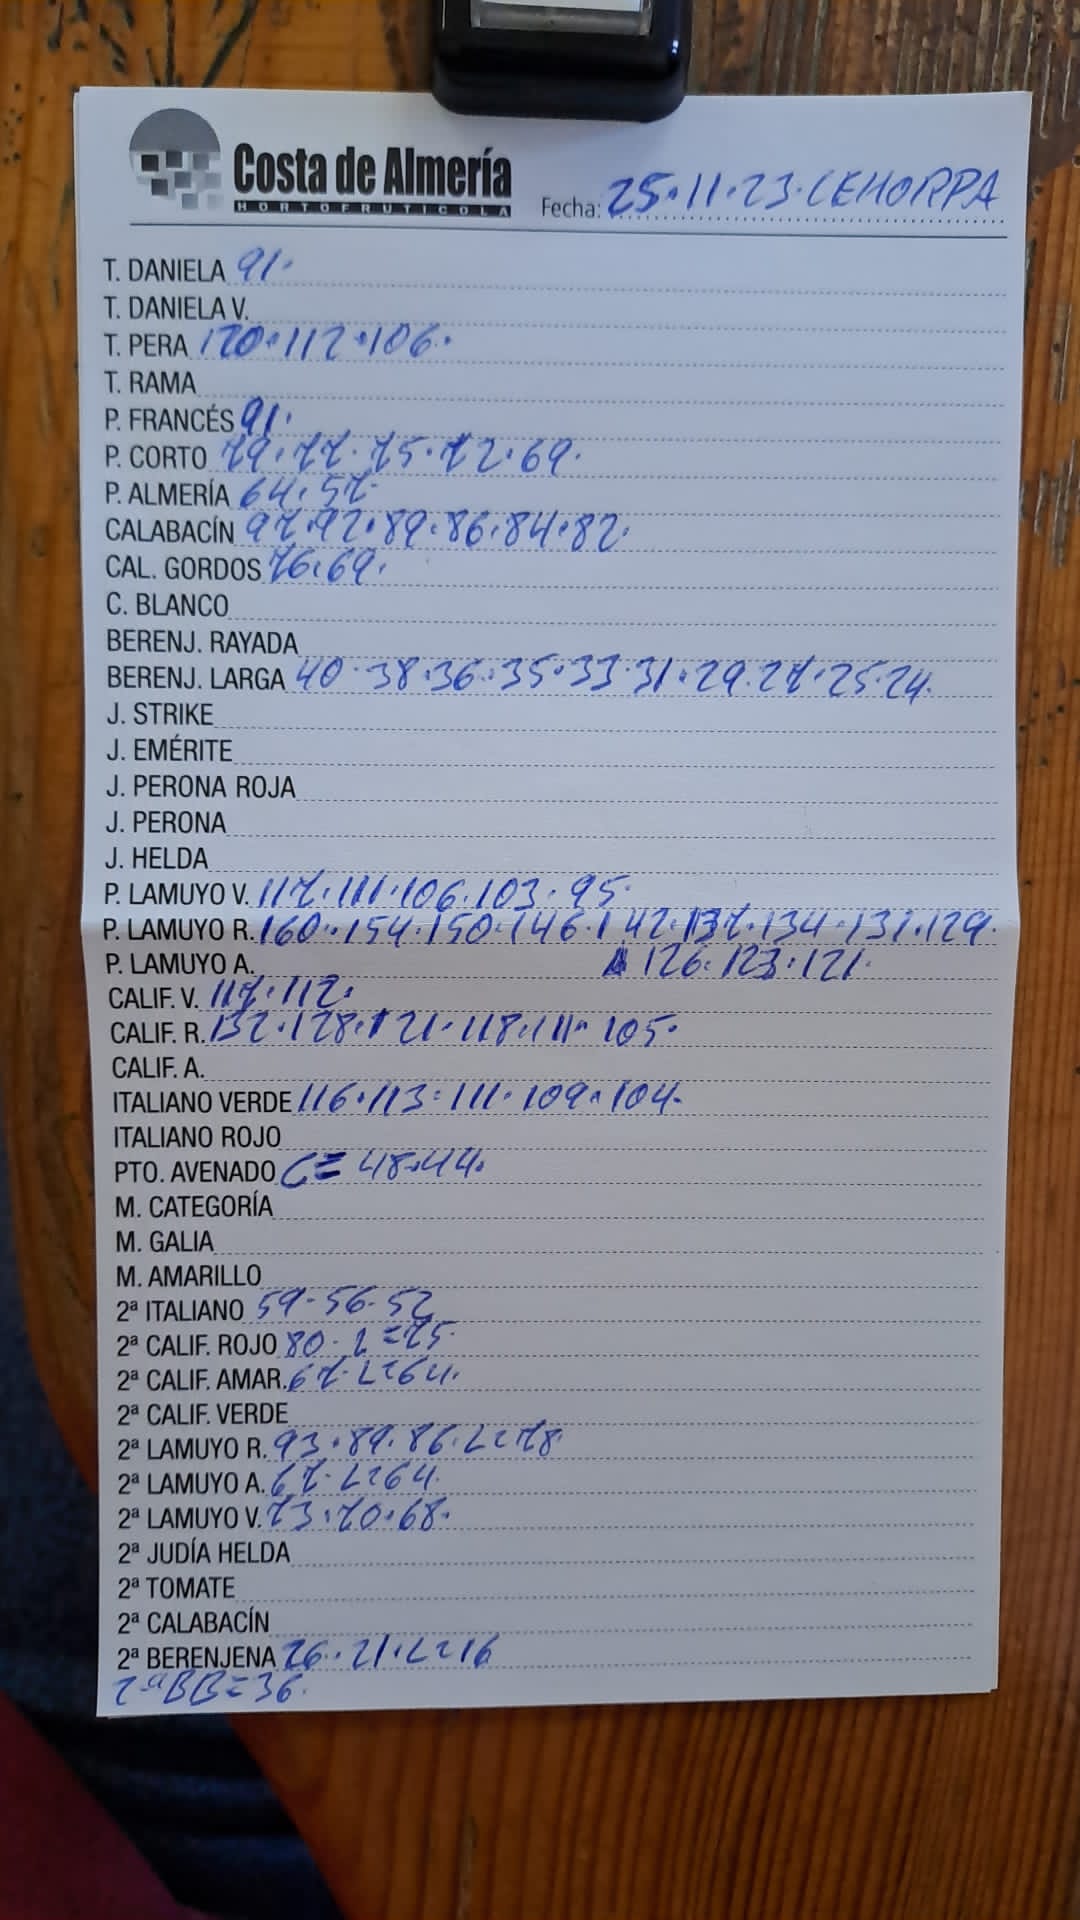 Costa de Almería
HORTOFRUTICOLA
Fecha: 25·11·23·CEHORPA
T. DANIELA 91·
T. DANIELA V.
T. PERA 120·112·106·
T. RAMA
P. FRANCÉS 91·
P. CORTO 79·77·75·72·69·
P. ALMERÍA 64·57·
CALABACÍN 97·92·89·86·84·82·
CAL. GORDOS 76·69·
C. BLANCO
BERENJ. RAYADA
BERENJ. LARGA 40·38·36·35·33·31·29·27·25·24·
J. STRIKE
J. EMÉRITE
J. PERONA ROJA
J. PERONA
J. HELDA
P. LAMUYO V. 117·111·106·103·95·
P. LAMUYO R. 160·154·150·146·142·137·134·131·129·
P. LAMUYO A. 126·123·121·
CALIF. V. 117·112·
CALIF. R. 132·128·121·118·111·105·
CALIF. A.
ITALIANO VERDE 116·113·111·109·104·
ITALIANO ROJO
PTO. AVENADO C= 48·44·
M. CATEGORÍA
M. GALIA
M. AMARILLO
2ª ITALIANO 59·56·52
2ª CALIF. ROJO 80·L=75·
2ª CALIF. AMAR. 67·L=64·
2ª CALIF. VERDE
2ª LAMUYO R. 93·89·86·L=78·
2ª LAMUYO A. 67·L=64·
2ª LAMUYO V. 73·70·68·
2ª JUDÍA HELDA
2ª TOMATE
2ª CALABACÍN
2ª BERENJENA 26·21·L=16
2ªBB=36·